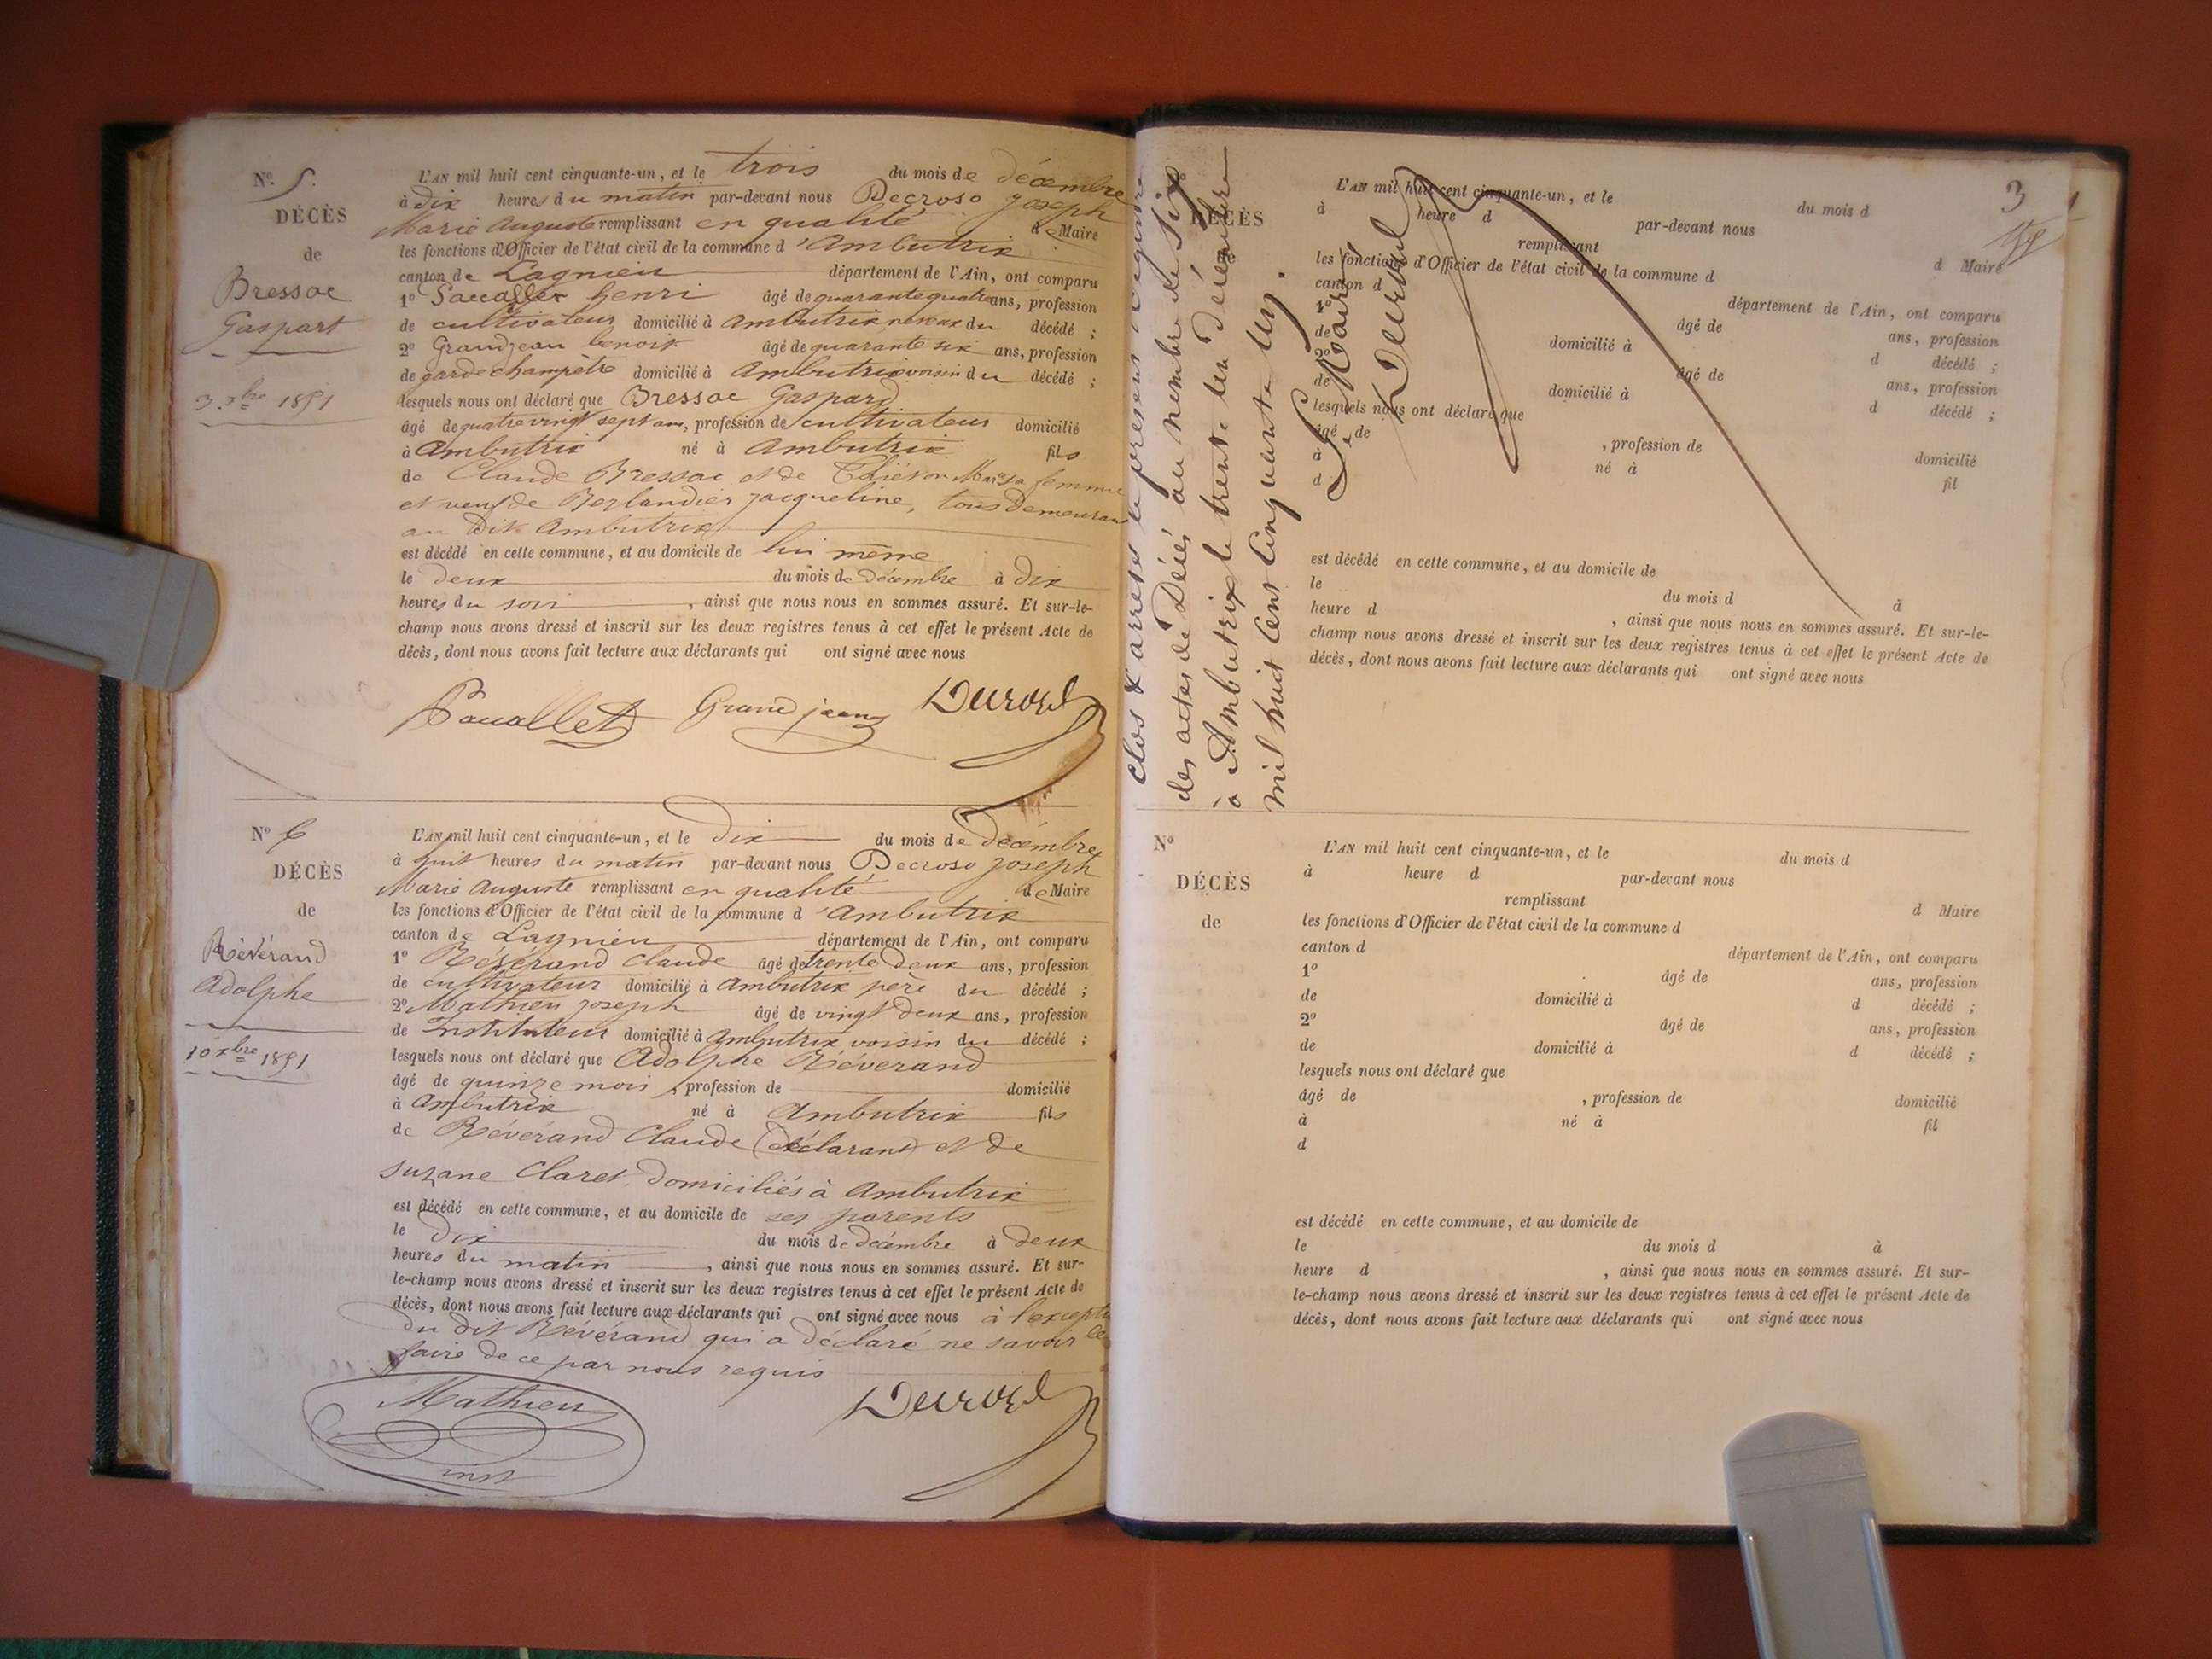 N.º 5.
DÉCÈS
de
Bressac
Gaspart
3 Xbre 1851
L'AN mil huit cent cinquante-un, et le trois du mois de décembre
à dix heures du matin par-devant nous Decroso joseph
Marie Auguste remplissant en qualité de Maire
les fonctions d'Officier de l'état civil de la commune d'Ambutrix
canton de Lagnieu département de l'Ain, ont comparu
1º henri âgé de quarante quatre ans, profession
de cultivateur domicilié à Ambutrix neveux du décédé ;
2º Grandjean benoit âgé de quarante six ans, profession
de garde champêtre domicilié à Ambutrix voisin du décédé ;
lesquels nous ont déclaré que Bressac Gaspard
âgé de quatre vingt sept ans, profession de cultivateur domicilié
à Ambutrix né à Ambutrix fils
de Claude Bressac et de sa femme
et veuf de Berlandier jacqueline, tous demeurant
au dit Ambutrix
est décédé en cette commune, et au domicile de lui même
le deux du mois de décembre à dix
heures du soir, ainsi que nous nous en sommes assuré. Et sur-le-
champ nous avons dressé et inscrit sur les deux registres tenus à cet effet le présent Acte de
décès, dont nous avons fait lecture aux déclarants qui ont signé avec nous
Grand jean
Nº 6
DÉCÈS
de
Révérand
Adolphe
10 Xbre 1851
L'AN mil huit cent cinquante-un, et le dix du mois de décembre
à huit heures du matin par-devant nous Decroso joseph
Marie Auguste remplissant en qualité de Maire
les fonctions d'Officier de l'état civil de la commune d'Ambutrix
canton de Lagnieu département de l'Ain, ont comparu
1º Révérand Claude âgé de trente deux ans, profession
de cultivateur domicilié à Ambutrix père du décédé ;
2º Mathieu joseph âgé de vingt deux ans, profession
de Instituteur domicilié à Ambutrix voisin du décédé ;
lesquels nous ont déclaré que Adolphe Révérand
âgé de quinze mois, profession de domicilié
à Ambutrix né à Ambutrix fils
de Révérand Claude (déclarant) et de
suzane Claret, domiciliés à Ambutrix
est décédé en cette commune, et au domicile de ses parents
le dix du mois de décembre à deux
heures du matin, ainsi que nous nous en sommes assuré. Et sur-
le-champ nous avons dressé et inscrit sur les deux registres tenus à cet effet le présent Acte de
décès, dont nous avons fait lecture aux déclarants qui ont signé avec nous à l'exception
du dit Révérand qui a déclaré ne savoir le
faire de ce par nous requis
Mathieu
inst
clos & arreté le présent registre
des actes de Décès au nombre de six
à Ambutrix le trente un Décembre
mil huit cent cinquante un.
Le Maire
3
DÉCÈS
L'AN mil huit cent cinquante-un, et le du mois d
à heure d par-devant nous
remplissant d Maire
les fonctions d'Officier de l'état civil de la commune d
canton d département de l'Ain, ont comparu
1º âgé de ans, profession
de domicilié à d décédé ;
2º âgé de ans, profession
de domicilié à d décédé ;
lesquels nous ont déclaré que
âgé de , profession de domicilié
à né à fil
d
est décédé en cette commune, et au domicile de
le du mois d à
heure d , ainsi que nous nous en sommes assuré. Et sur-le-
champ nous avons dressé et inscrit sur les deux registres tenus à cet effet le présent Acte de
décès, dont nous avons fait lecture aux déclarants qui ont signé avec nous
Nº
DÉCÈS
de
L'AN mil huit cent cinquante-un, et le du mois d
à heure d par-devant nous
remplissant d Maire
les fonctions d'Officier de l'état civil de la commune d
canton d département de l'Ain, ont comparu
1º âgé de ans, profession
de domicilié à d décédé ;
2º âgé de ans, profession
de domicilié à d décédé ;
lesquels nous ont déclaré que
âgé de , profession de domicilié
à né à fil
d
est décédé en cette commune, et au domicile de
le du mois d à
heure d , ainsi que nous nous en sommes assuré. Et sur-
le-champ nous avons dressé et inscrit sur les deux registres tenus à cet effet le présent Acte de
décès, dont nous avons fait lecture aux déclarants qui ont signé avec nous